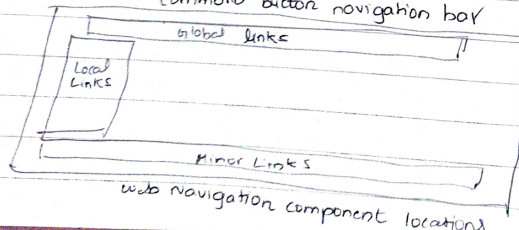 common button navigation bar
Global links
Local
Links
Minor Links
web Navigation component locations